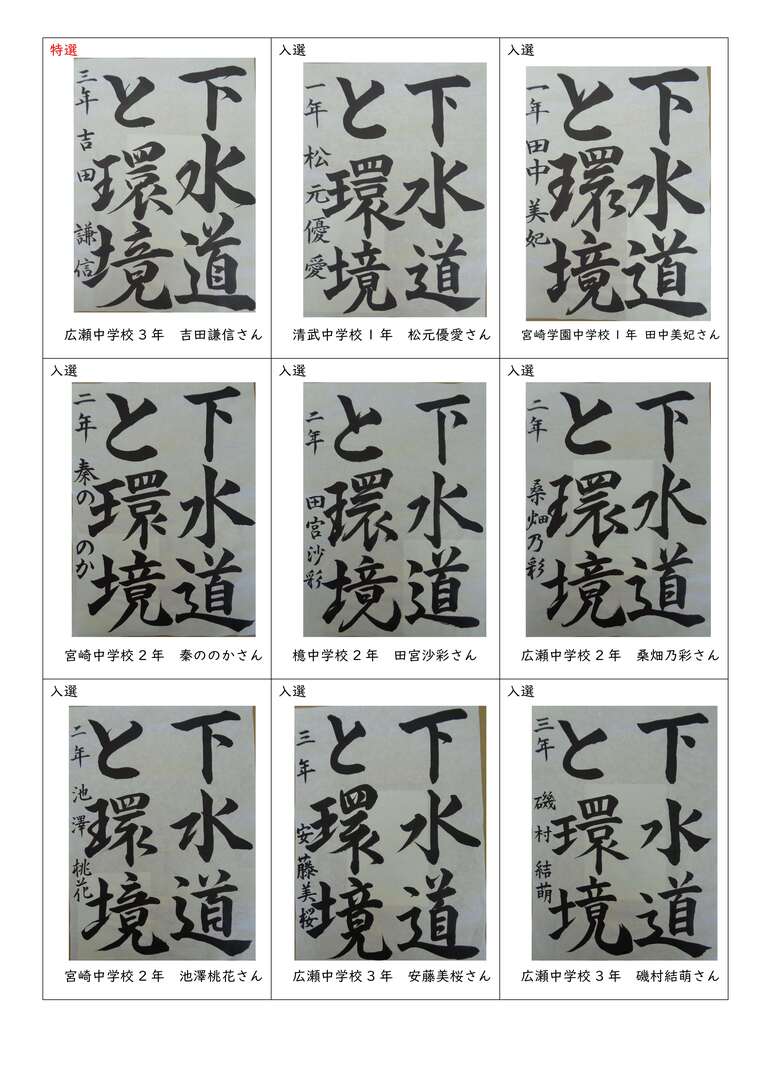 特選
下水道
と環境
三年 吉田 謙信
広瀬中学校3年 吉田謙信さん
入選
下水道
と環境
一年 松元優愛
清武中学校1年 松元優愛さん
入選
下水道
と環境
一年 田中 美妃
宮崎学園中学校1年 田中美妃さん
入選
下水道
と環境
二年 秦の のか
宮崎中学校2年 秦ののかさん
入選
下水道
と環境
二年 田宮沙彩
檍中学校2年 田宮沙彩さん
入選
下水道
と環境
二年 桑畑乃彩
広瀬中学校2年 桑畑乃彩さん
入選
下水道
と環境
二年 池澤 桃花
宮崎中学校2年 池澤桃花さん
入選
下水道
と環境
三年 安藤美桜
広瀬中学校3年 安藤美桜さん
入選
下水道
と環境
三年 磯村 結萌
広瀬中学校3年 磯村結萌さん